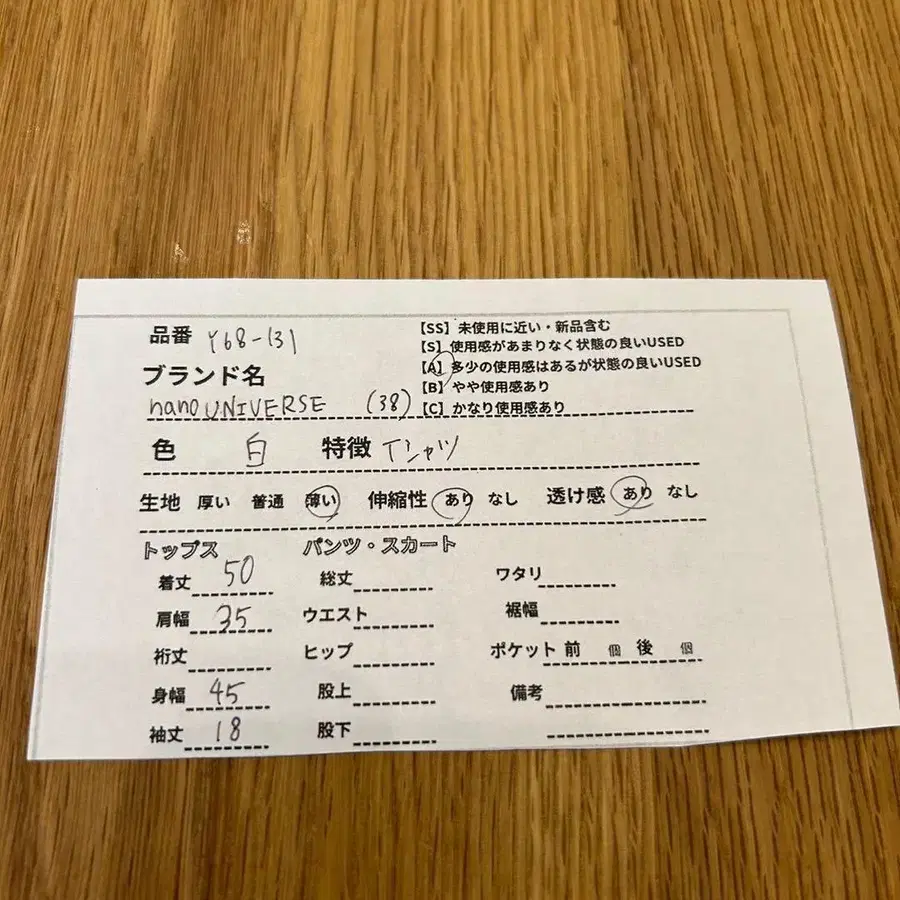 品番 Y68-131
【SS】未使用に近い・新品含む
【S】使用感があまりなく状態の良いUSED
【A】多少の使用感はあるが状態の良いUSED
【B】やや使用感あり
【C】かなり使用感あり
ブランド名
nano UNIVERSE (38)
色 白 特徴 Tシャツ
生地 厚い 普通 薄い 伸縮性 あり なし 透け感 あり なし
トップス パンツ・スカート
着丈 50 総丈 ワタリ
肩幅 35 ウエスト 裾幅
裄丈 ヒップ ポケット 前 個 後 個
身幅 45 股上 備考
袖丈 18 股下